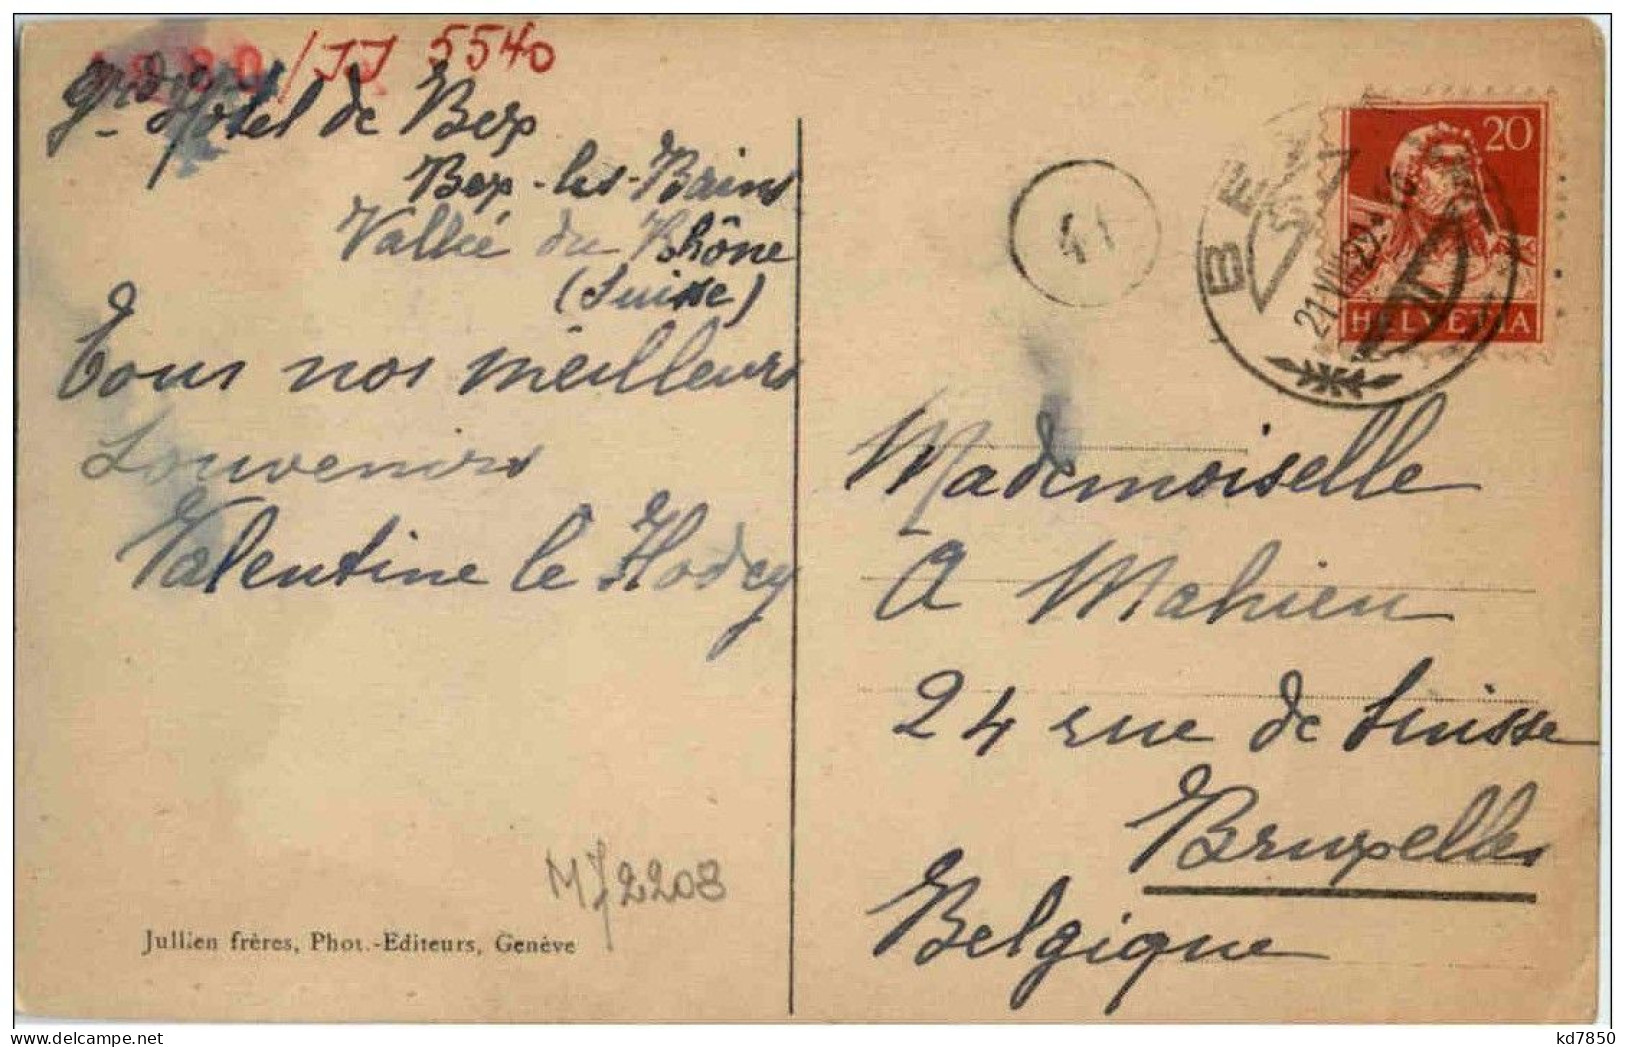 /JJ 5540
Hotel de Bex
Bex-les-Bains
Vallée du Rhône
(Suisse)
Tous nos meilleurs
Souvenirs
Valentine le Hodey
M/2208
Jullien frères, Phot.-Editeurs, Genève
BEX
21.VIII.22
20
HELVETIA
41
Mademoiselle
A Mahieu
24 rue de Suisse
Bruxelles
Belgique
kd7850